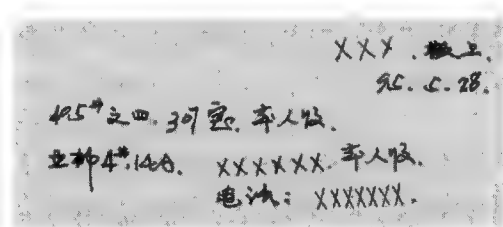 XXX.敬上.
95.5.28.
405#之四.301室.本人收.
XXXXXX.本人收.
电话：XXXXXXX.